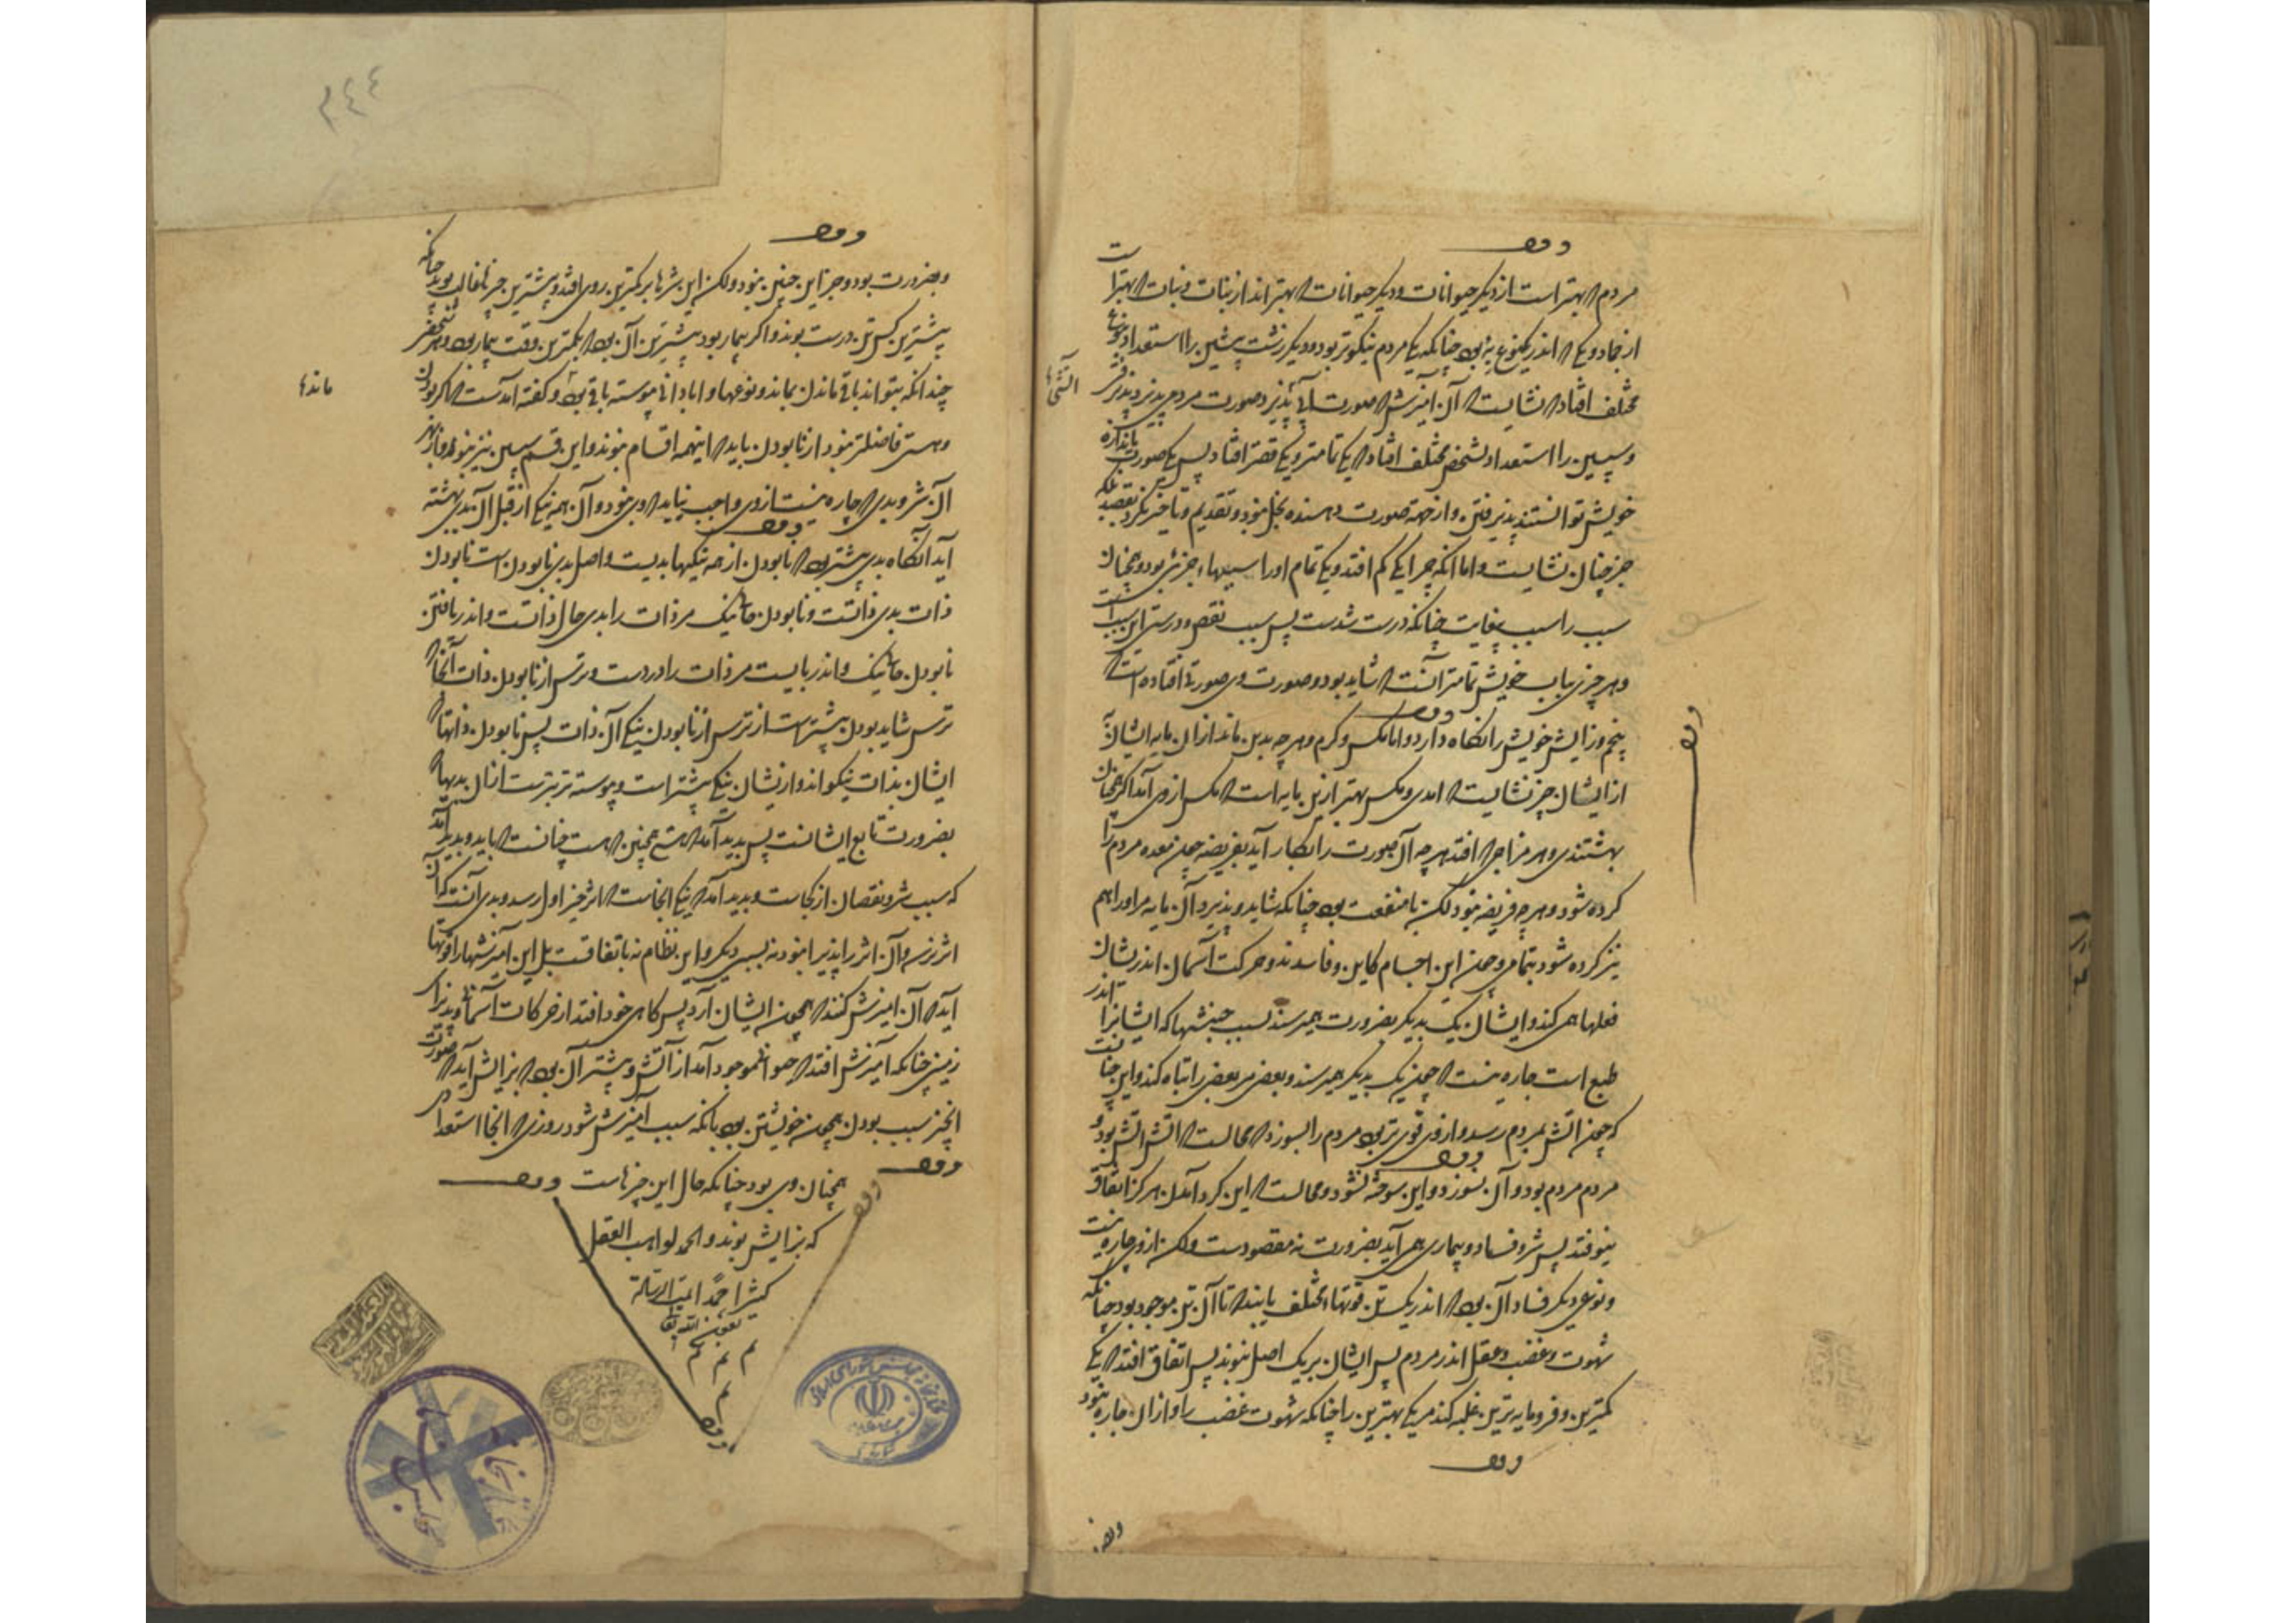 وقف
مردم که بهتر است از دیگر حیوانات و دیگر حیوانات که بهتراند از نبات و نبات که بهتر است
از جماد و یکی که اندر یک نوع به بود چنانکه یکی مردم نیکوتر بود و دیگر زشت پیشین را استعداد نوعها
مختلف افتاد که نشایست که آن آمیزش که صورت پذیرد صورت مردمی پذیرد
و سپسین را استعداد شخص مختلف افتاد که یکی تمامتر و یکی ناقصتر افتاد پس یکی صورت باندازه
خویش توانستند پذیرفتن و از جهة صورت دهنده بخل نبود و تقدیم و تأخیر نکرد بقصد بلکه
جز چنان نشایست و اما آنکه چرا یکی کم افتد و یکی تمام او را سببهاء جزئی بود و همچنان
سبب را سبب بغایت چنانکه درست شدست پس سبب نقص و درستی این سببست
و هر چیزی بباب خویش تمامتر آنست که شاید بود و صورت وی صورتی افتاده است که
وقف
تخم و زایش خویش را نگاه دارد و اما مگس و کرم و هر چه بدین ماند از آن مایه ایشان
از ایشان جز نشایست که آمدی و مگس بهتر از آن مایه است که مگس از وی آمد اگر همچنان
بهشتندی و هر مزاجی که افتد هر چه آن صورت را بکار آید بفریضه چون معده مردم را
کرده شود و هر چه فریضه نبود لکن با منفعت بود چنانکه شاید و پذیرد آن مایه مر او را هم
نیز کرده شود بتمامی و چون این اجسام کاین و فاسدند و حرکت آسمان اندر ایشان
فعلها همی کند و ایشان یک بدیگر بضرورت همی رسند بسبب جنبشها که ایشانرا اندر
طبع است چاره نیست که چون یک بدیگر همی رسند و بعضی مر بعضی را تباه کند و این چنانست
که چون آتش بمردم رسد و از وی قوی تر بود مردم را بسوزد که محالست که آتش آتش بود و
وقف
مردم مردم بود و آن نسوزد و این سوخته نشود و محالست که این گرد آمدن هرگز اتفاق
نیوفتد پس شر و فساد و بیماری همی آید بضرورت نه مقصودست ولکن از وی چاره نیست
و نوعی دیگر فساد آن بود که اندر یک تن قوتها مختلف بایند که تا آن تن موجود بود چنانکه
شهوت و غضب و عقل اندر مردم پس ایشان بر یک اصل نبوند پس اتفاق افتد که یکی
کمترین و فرومایه ترین غلبه کند مر یکی بهترین را چنانکه شهوت غضب را و از آن چاره نبود
وقف
وقف
وبضر
۲۴۴
وقف
و بضرورت بود و جز این چنین نبود ولکن این شرها بر کمترین روی افتد و بیشترین خیرها غالب بود چنانکه
بیشترین کس تن درست بوند و اگر بیمار بود بیشترین آن بود که بکمترین وقت بیمار بود و هر شخص
چندانکه بتواند باقی ماندن بماند و نوعها و ابادانی پیوسته باقی بود و گفته آمدست که اگر بودن
ماندها
و هستی فاضلتر نبود از نابودن باید که اینهمه اقسام نبوند و این قسم سپسین نیز نبود و از بهر
آن شر و بدی که چاره نیست از وی واجب نیاید که وی نبود و آن همه نیکی از قبل آن بدی بهشته
وقف
آید آنگاه بدی بیشتر بود که نابودن از همه نیکیها بدیست و اصل بدی نابودن است نابودن
ذات بدی ذاتست و نابودن حال نیک مر ذات را بدی حال ذاتست و اندر یافتن
نابودن حال نیک و اندر بایست مر ذات را دردست و ترس از نابودن ذات آنجا که
ترس شاید بودن بیشتر است از ترس از نابودن نیکی آن ذات پس نابودن ذاتها که
ایشان بذات نیکواند و از ایشان نیکی بیشتر است و پیوسته تر بترست از آن بدیها که
بضرورت تابع ایشانست پس پدید آمد که هستی همچنین که هست چنانست که باید و پدید آمد
که سبب شر و نقصان از کجاست و پدید آمد که نیکی آنجاست که اثر خیر اول رسد و بدی آنست که آن
اثر نرسد و آن اثر را پذیرا نبود نه بسبب دیگر و این نظام نه باتفاقست بل این آمیزشها را قوتها
آید که آن آمیزش کنند که همچون ایشان آرد پس گاهی خود افتد از حرکات آسمانی و پذیرای
زمینی چنانکه آمیزش افتد که حیوانی موجود آمد از آتش و بیشتر آن بود که بزایش آید که صورت
آن چیز سبب بودن همچون خویشتن بود بآنکه سبب آمیزش شود روزی که آنجا استعداد
وقف
همچنان وی بود چنانکه حال این چیزهاست وقف
که بزایش بوند و الحمد لواهب العقل
کثیرا حمدا تمت الرسالة
بعون الله تعالی
م م م
م
وقف